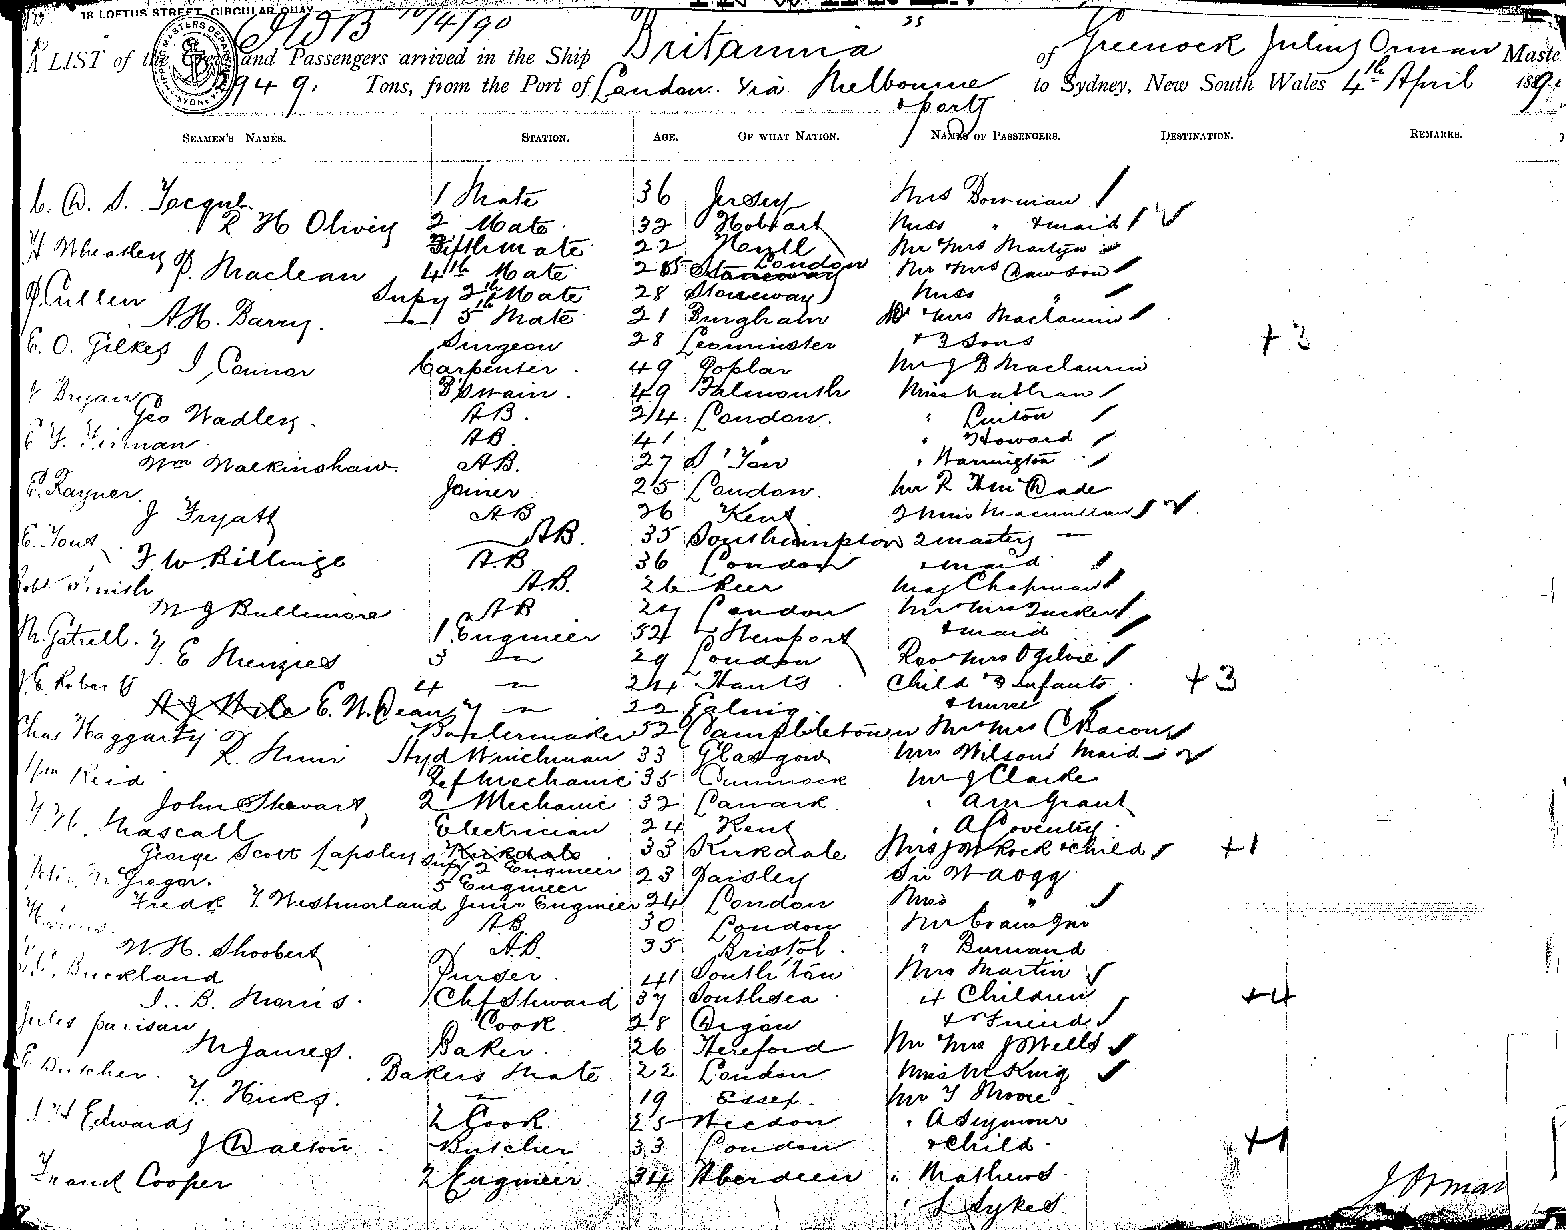 18 LOFTUS STREET, CIRCULAR QUAY
10/4/90
A LIST of the Crew and Passengers arrived in the Ship Britannia of Greenock Julius Orman Maste
949. Tons, from the Port of London via Melbourne to Sydney, New South Wales 4th April
+ ports
SEAMEN'S NAMES. STATION. AGE. OF WHAT NATION. NAMES OF PASSENGERS. DESTINATION. REMARKS.
1 Mate 36 Jersey Mrs Bowman
R H Olivey 2 Mate 32 Hobart Miss " + maid
H Wheatley Fifth mate 22 Mr + Mrs Martyn
P. Maclean 4th Mate London Mr + Mrs Dawson
P. Cullen Supy 2nd Mate 28 Stoneway Miss "
A H. Barry. 5th Mate 21 Burgham Mrs Maclaurin
E. O. Gilkes Surgeon 28 Leominster + 3 Sons +3
J. Connor Carpenter. 49 Poplar Mr J B Maclaurin
J Bryan B'swain. 49 Falmouth Miss
Geo Wadley. AB. 24 London. " Linton
AB. 41 " " Howard
Wm Walkinshaw. AB. 27 S'Ton " Warrington
E. Rayner. Joiner 25 London. Mr R
J Fryatt AB 26 Kent 2 Miss Macmillan
AB. 35 Southampton 2 masters
F. W. Billinge AB 36 London + maid
A.B. 26 Beer Maj Chapman
W J Bullimore AB London Mr + Mrs Tucker
M. Gatrell. 1 Engineer 52 Newport + maid
T. E Menzies 3 " 29 London Rev + Mrs Ogilvie
J. E. Roberts 4 " 24 Hants Child + 3 Infants. +3
E. W. Dean " 22 Ealing. + nurse
Chas Haggarty Boilermaker 52 Campbletown Mr + Mrs C Bacon
Hyd Winchman 33 Glasgow Mrs Wilson's Maid
Wm Reid Ref Mechanic 35 Cumnock Mr J Clarke
John Stewart 2 Mechanic 32 Lanark. " A M Grant
Mascall Electrician 24 Kent " A Coventry.
George Scott Lapsley Supy 2 Engineer 33 Kirkdale Mrs J W Rock + child +1
McGregor. 5 Engineer 23 Paisley Sir
Fredk T. Westmorland Junr Engineer 24 London Miss "
AB. 30 London Mr Evans Jnr
W. H. Shoobert A.B. 35 Bristol. " Burnand
Buckland Purser. 41 South'ton Mrs Martin
J. B. Morris. Chf Steward 37 Southsea 4 Children +4
Jules Parisan Cook 28 Digan + Friend
M James. Baker. 26 Hereford Mr + Mrs J Wells
E Butcher. Bakers Mate 22 London Miss M King
T. Hicks. " 19 Essex. Mr T Moore
Edwards 2 Cook 25 Weedon " A Seymour
J Dalton. Butcher 33 London + child. +1
Frank Cooper 2 Engineer 34 Aberdeen " Mathews
" S Sykes
J Orman